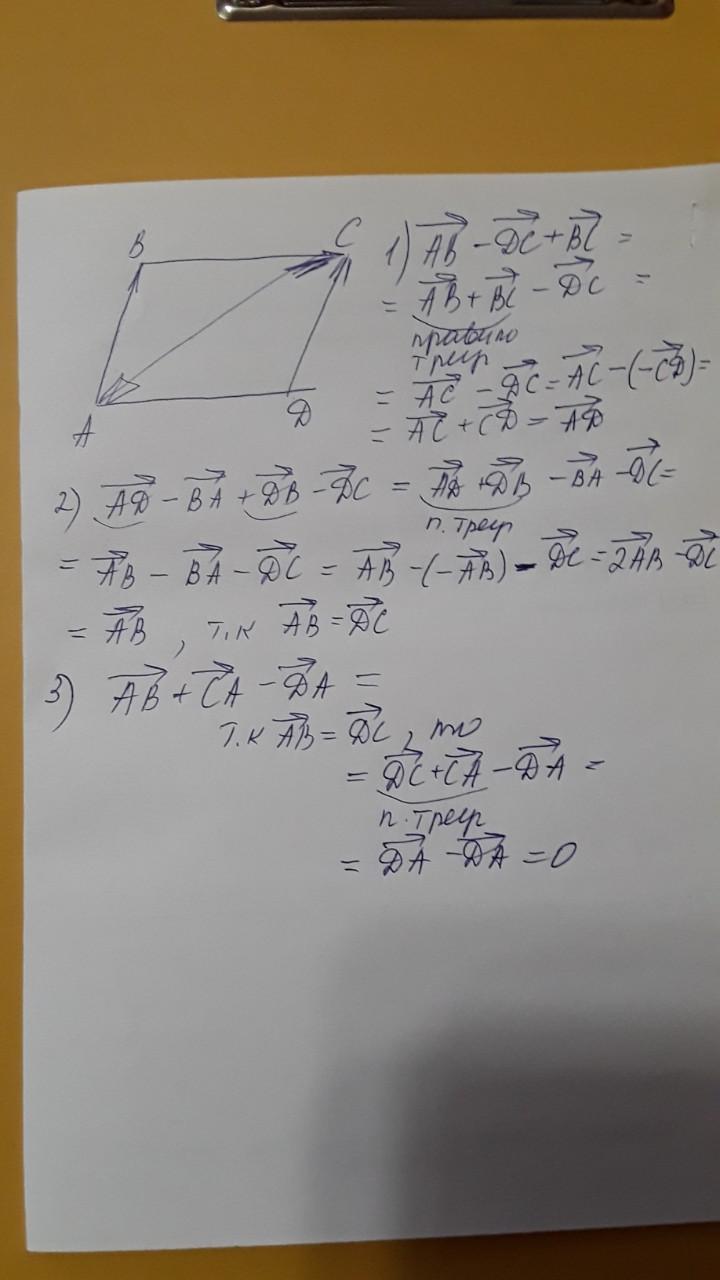 B
C
A
D
1) AB⃗ - DC⃗ + BC⃗ =
= AB⃗ + BC⃗ - DC⃗ =
правило
треуг
= AC⃗ - DC⃗ = AC⃗ - (-CD⃗) =
= AC⃗ + CD⃗ = AD⃗
2) AD⃗ - BA⃗ + DB⃗ - DC⃗ = AD⃗ + DB⃗ - BA⃗ - DC⃗ =
п. треуг
= AB⃗ - BA⃗ - DC⃗ = AB⃗ - (-AB⃗) - DC⃗ = 2AB⃗ - DC⃗
= AB⃗ , т.к AB⃗ = DC⃗
3) AB⃗ + CA⃗ - DA⃗ =
т.к AB⃗ = DC⃗, то
= DC⃗ + CA⃗ - DA⃗ =
п. треуг
= DA⃗ - DA⃗ = 0